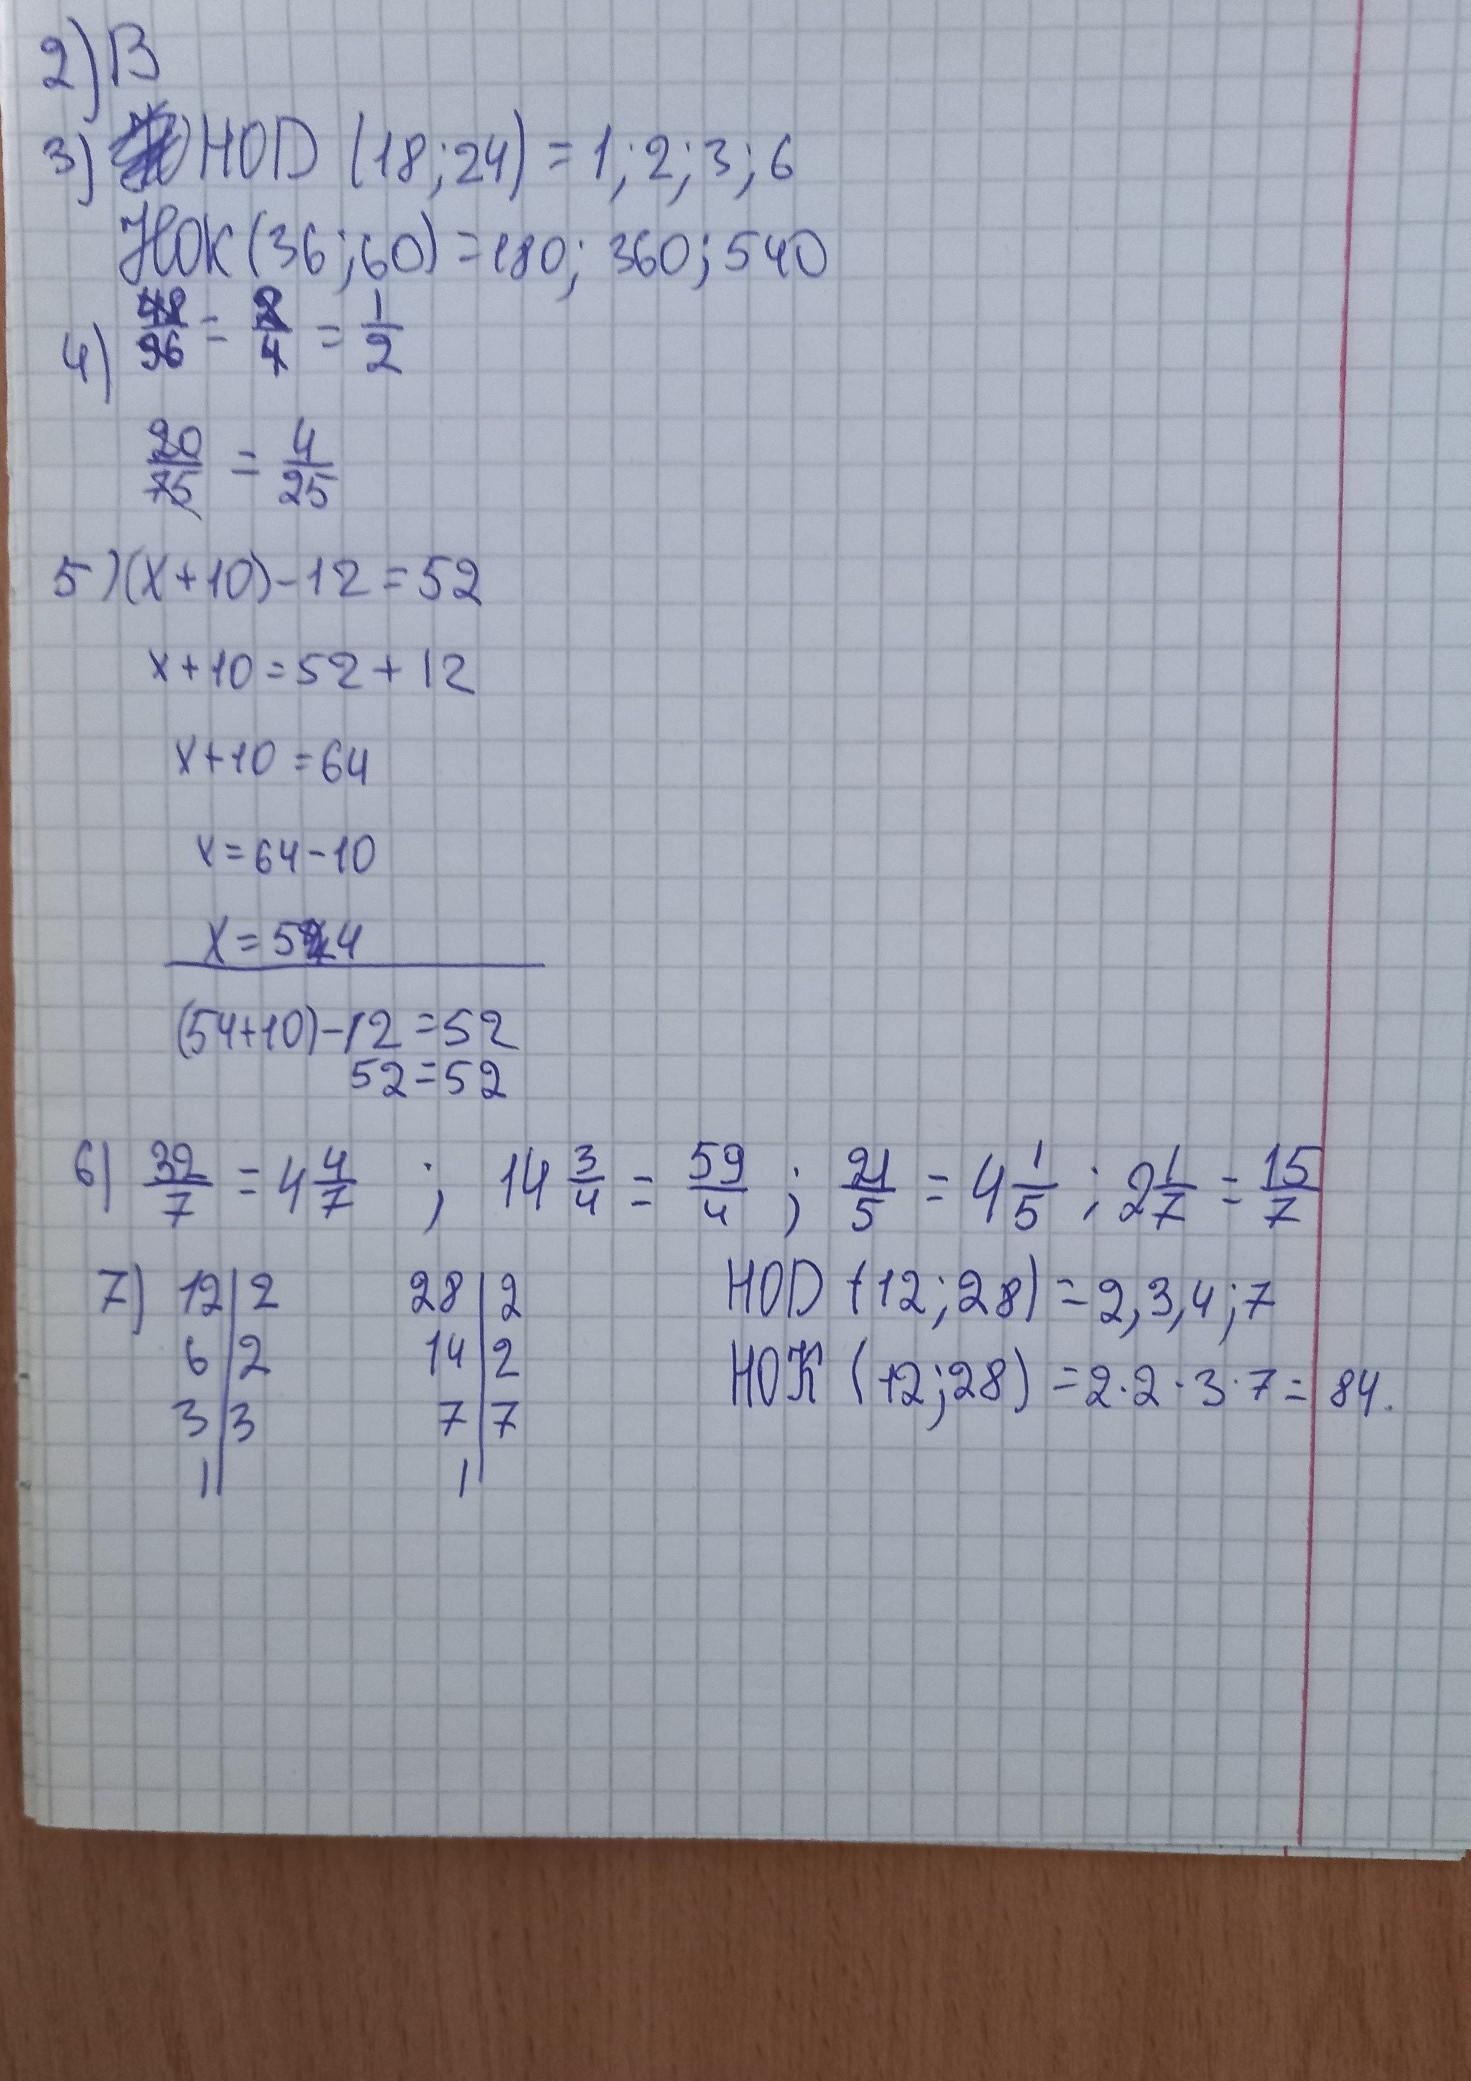 2) В
3) НОD (18;24) = 1; 2; 3; 6
НОК (36;60) = 180; 360; 540
4) 48/96 = 2/4 = 1/2
20/75 = 4/25
5) (x+10)-12=52
x+10=52+12
x+10=64
x=64-10
x=54
(54+10)-12=52
52=52
6) 32/7 = 4 4/7 ; 14 3/4 = 59/4 ; 21/5 = 4 1/5 ; 2 1/7 = 15/7
7) 12|2 28|2 НОD (12;28) = 2,3,4;7
6|2 14|2 НОК (12;28) = 2·2·3·7 = 84.
3|3 7|7
1| 1|